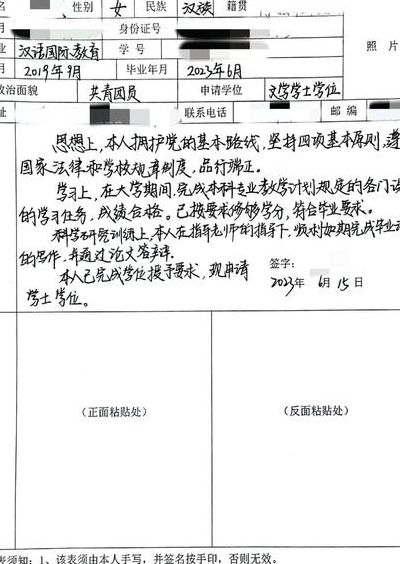 名 性别 女 民族 汉族 籍贯
月 身份证号
业 汉语国际教育 学 号 照 片
月 2019年9月 毕业年月 2023年6月
政治面貌 共青团员 申请学位 文学学士学位
址 联系电话 邮 编
思想上，本人拥护党的基本路线，坚持四项基本原则，遵
国家法律和学校规章制度，品行端正。
学习上，在大学期间，完成本科专业教学计划规定的各门课
的学习任务，成绩合格。已按要求修够学分，符合毕业要求。
科学研究训练上，本人在指导老师的指导下，顺利如期完成毕业论
的写作，并通过论文答辩。
本人已完成学位授予要求，现申请
学士学位。
签字：
2023年 6月 15日
（正面粘贴处） （反面粘贴处）
表须知：1、该表须由本人手写，并签名按手印，否则无效。